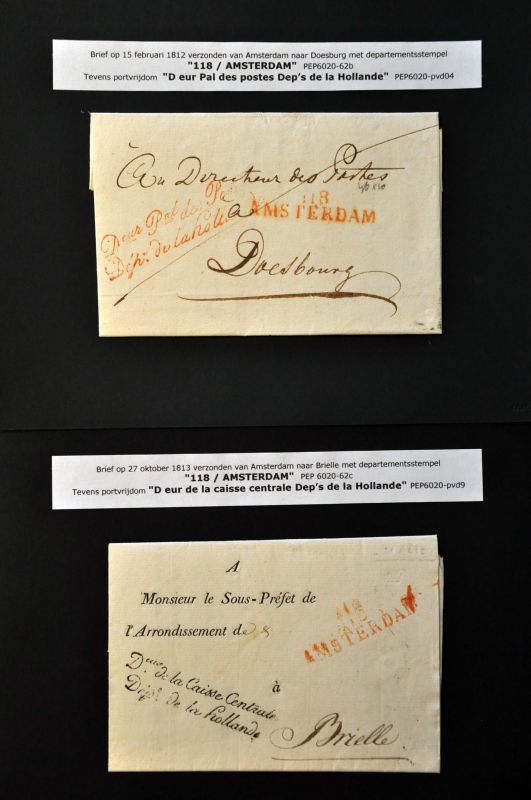 Brief op 15 februari 1812 verzonden van Amsterdam naar Doesburg met departementsstempel
"118 / AMSTERDAM" PEP6020-62b
Tevens portvrijdom "D eur Pal des postes Dep's de la Hollande" PEP6020-pvd04
Au Directeur des Postes
Deur Pal des Postes
Dépt. de la hollande
à
118
AMSTERDAM
Doesbourg
Brief op 27 oktober 1813 verzonden van Amsterdam naar Brielle met departementsstempel
"118 / AMSTERDAM" PEP 6020-62c
Tevens portvrijdom "D eur de la caisse centrale Dep's de la Hollande" PEP6020-pvd9
A
Monsieur le Sous-Préfet de
l'Arrondissement de
118
AMSTERDAM
Deur de la Caisse Centrale
Dépt. de la hollande
à
Brielle.